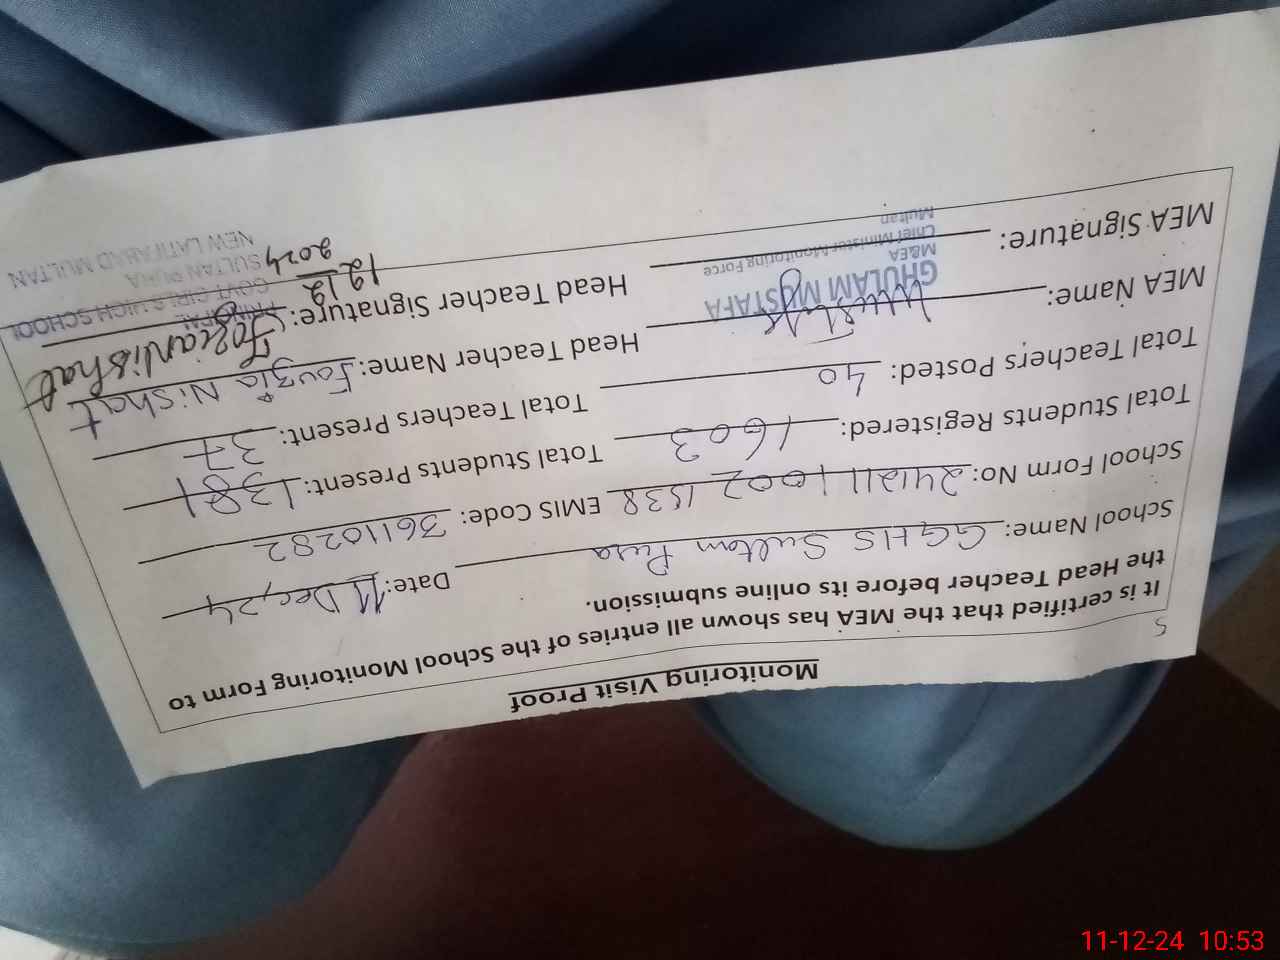 Monitoring Visit Proof
It is certified that the MEA has shown all entries of the School Monitoring Form to
the Head Teacher before its online submission.
School Name: GGHS Sultan Pura Date: 11 Dec, 24
School Form No: 241211 1002 1538 EMIS Code: 36110282
Total Students Registered: 1603 Total Students Present: 1381
Total Teachers Posted: 40 Total Teachers Present: 37
MEA Name: Head Teacher Name: Fouzia Nishat
MEA Signature: Head Teacher Signature:
GHULAM MUSTAFA
M&EA
Chief Minister Monitoring Force
Multan
PRINCIPAL
GOVT. GIRLS HIGH SCHOOL
SULTAN PURA
NEW LATIFABAD MULTAN
2024
11-12-24 10:53